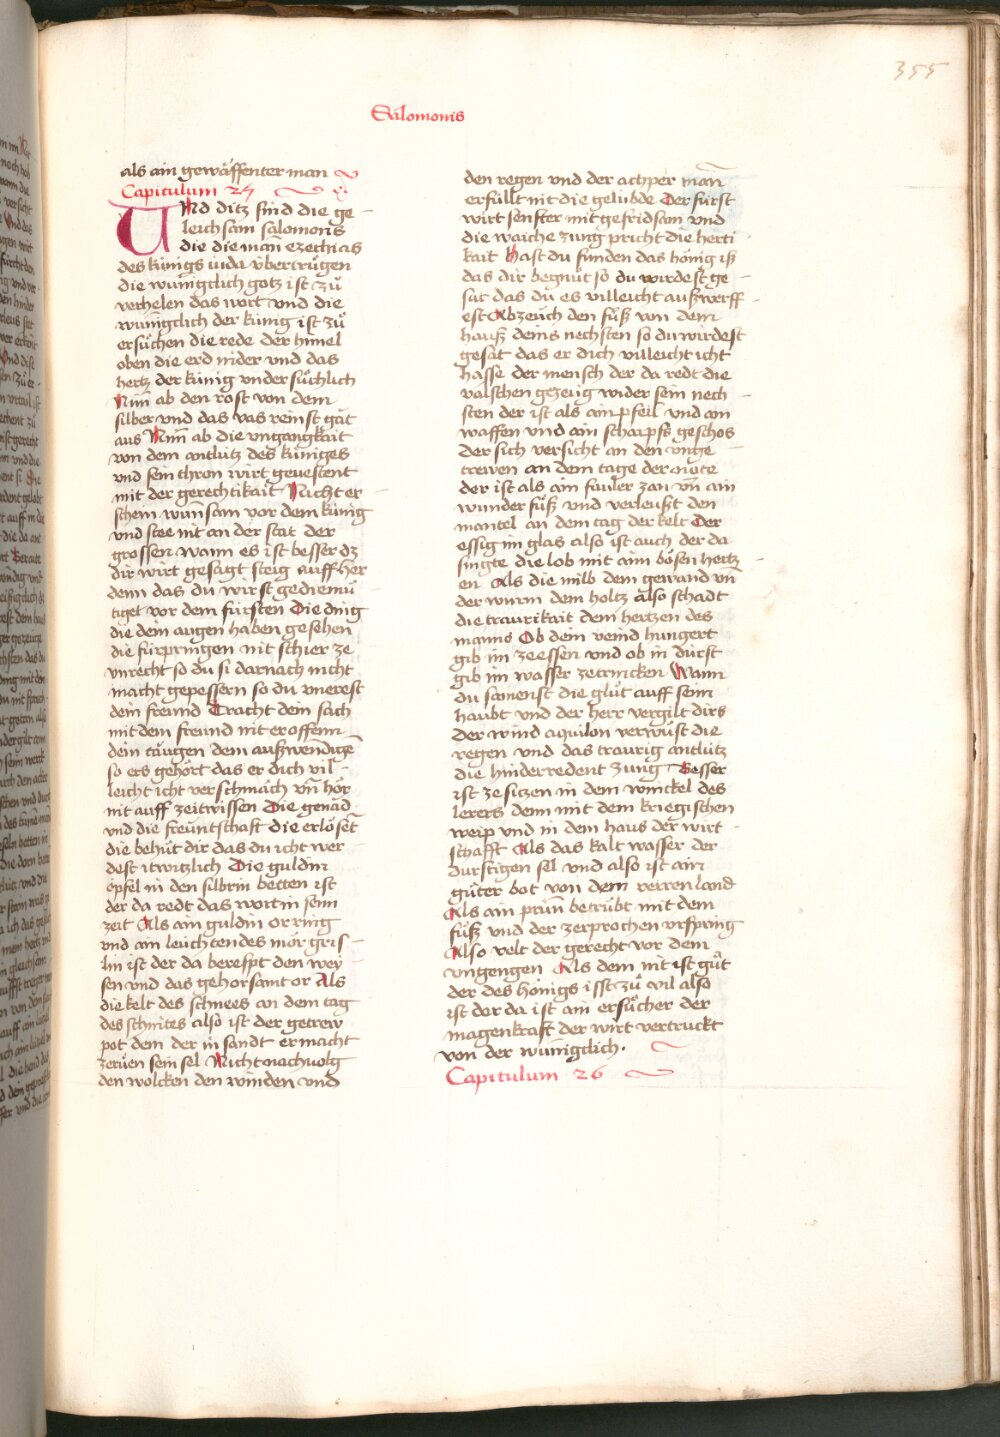 355
Salomonis
als ain gewäffenter man
Capitulum 25
Vnd ditz sind die ge
leichsam salomonis
die die man ezechias
des künigs iuda vbertrügen
die wuniglich gotz ist zü
verhelen das wort vnd die
wuniglich der künig ist zü
ersüchen die rede der himel
oben die erd nider vnd das
hertz der künig vndersüchlich
Nim ab den rost von dem
silber vnd das vas reinst gät
aus Nim ab die vngangkait
von dem antlütz des küniges
vnd sein thron wirt geuestent
mit der gerechtikait Nicht er
schein wunsam vor dem künig
vnd stee nit an der stat der
grossen wann es ist besser dz
dir wirt gesagt steig auff her
denn das du wirst gediemü
tiget vor dem fürsten Die ding
die dein augen haben gesehen
die fürpringen nit schier ze
vnrecht so du si darnach nicht
macht gepessern so du vnerest
dein freund Tracht dein sach
mit dem freund nit eroffenn
dein taugen dem außwendigē
so ers gehört das er dich vil
leicht icht verschmach vn̄ hör
nit auff zeitwissen Die genad
vnd die freüntschafft die erlösēt
die behüt dir das du icht wer
dest itwitzlich Die guldin
öpfel in den silbrin betten ist
der da redt das wort in seinn
zeit Als ain guldin orring
vnd ain leuchtendes mörgris
lin ist der da berefft den wey
sen vnd das gehorsamt or Als
die kelt des schnees an dem tag
des schnites also ist der getrew
pot dem der in sandt er macht
zerüen sein sel Nicht nachuolg
den wolcken den winden vnd
den regen vnd der achper man
erfüllt nit die gelübde Der fürst
wirt senfter mit gefridsam vnd
die waiche zung pricht die herti
kait Hast du funden das hönig iß
das dir begnüt so du wirdest ge
sat das du es villeicht außwerff
est Abzeüch den füß von dem
hauß deins nechsten so du wirdest
gesät das er dich villeicht icht
hasse der mensch der da redt die
valschen gezeug wider sein nech
sten der ist als ain pfeil vnd ain
waffen vnd ain scharpfs geschos
der sich versicht an den vnge
trewen an dem tage der note
der ist als ain fauler zan vn̄ ain
wunder füß vnd verleußt den
mantel an dem tag der kelt Der
essig im glas also ist auch der da
singte die lob mit aim bösen hertz
en Als die milb dem gewand vn̄
der wurm dem holtz also schadt
die traurikait dem hertzen des
manns Ob dein veind hungert
gib im zeessen vnd ob in dürst
gib im wasser zetrincken Wann
du samenst die glüt auff sein
haubt vnd der herr vergilt dirs
der wind aquilon verwüst die
regen vnd das traurig antlütz
die hinderredent zung Besser
ist zesitzen in dem winckel des
lerers denn mit dem kriegischen
weip vnd in dem haus der wirt
schafft Als das kalt wasser der
durstigen sel vnd also ist ain
güter bot von dem verren land
Als ain prün betrübt mit dem
füß vnd der zerprochen vrspring
Also velt der gerecht vor dem
vngengen Als dem nit ist güt
der des hönigs isst zü vil also
ist der da ist ain ersücher der
magenkraft der wirt vertruckt
von der wuniglich.
Capitulum 26